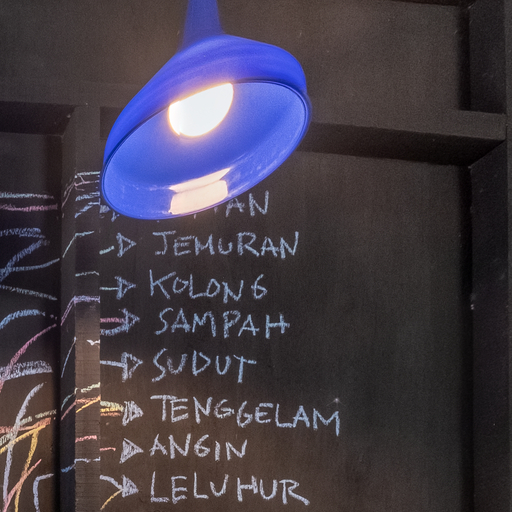 JEMURAN
KOLONG
SAMPAH
SUDUT
TENGGELAM
ANGIN
LELUHUR